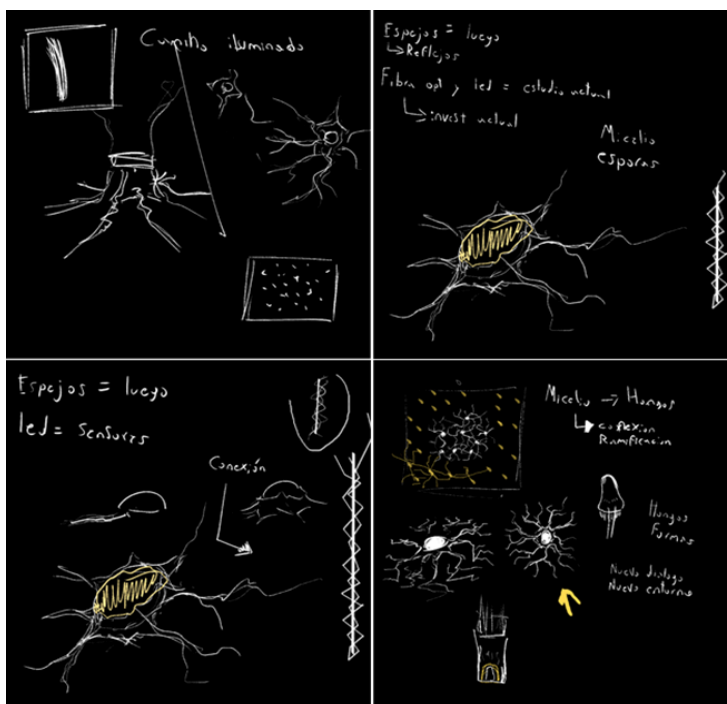 Caminho iluminado
Espejos = luego
Reflejos
Fibra opt y led = estudio actual
invest actual
Micelio
esporas
Espejos = luego
led = Sensores
Conexión
Micelio → Hongos
conexion
Ramificacion
Hongos
Formas
Nuevo dialogo
Nuevo entorno